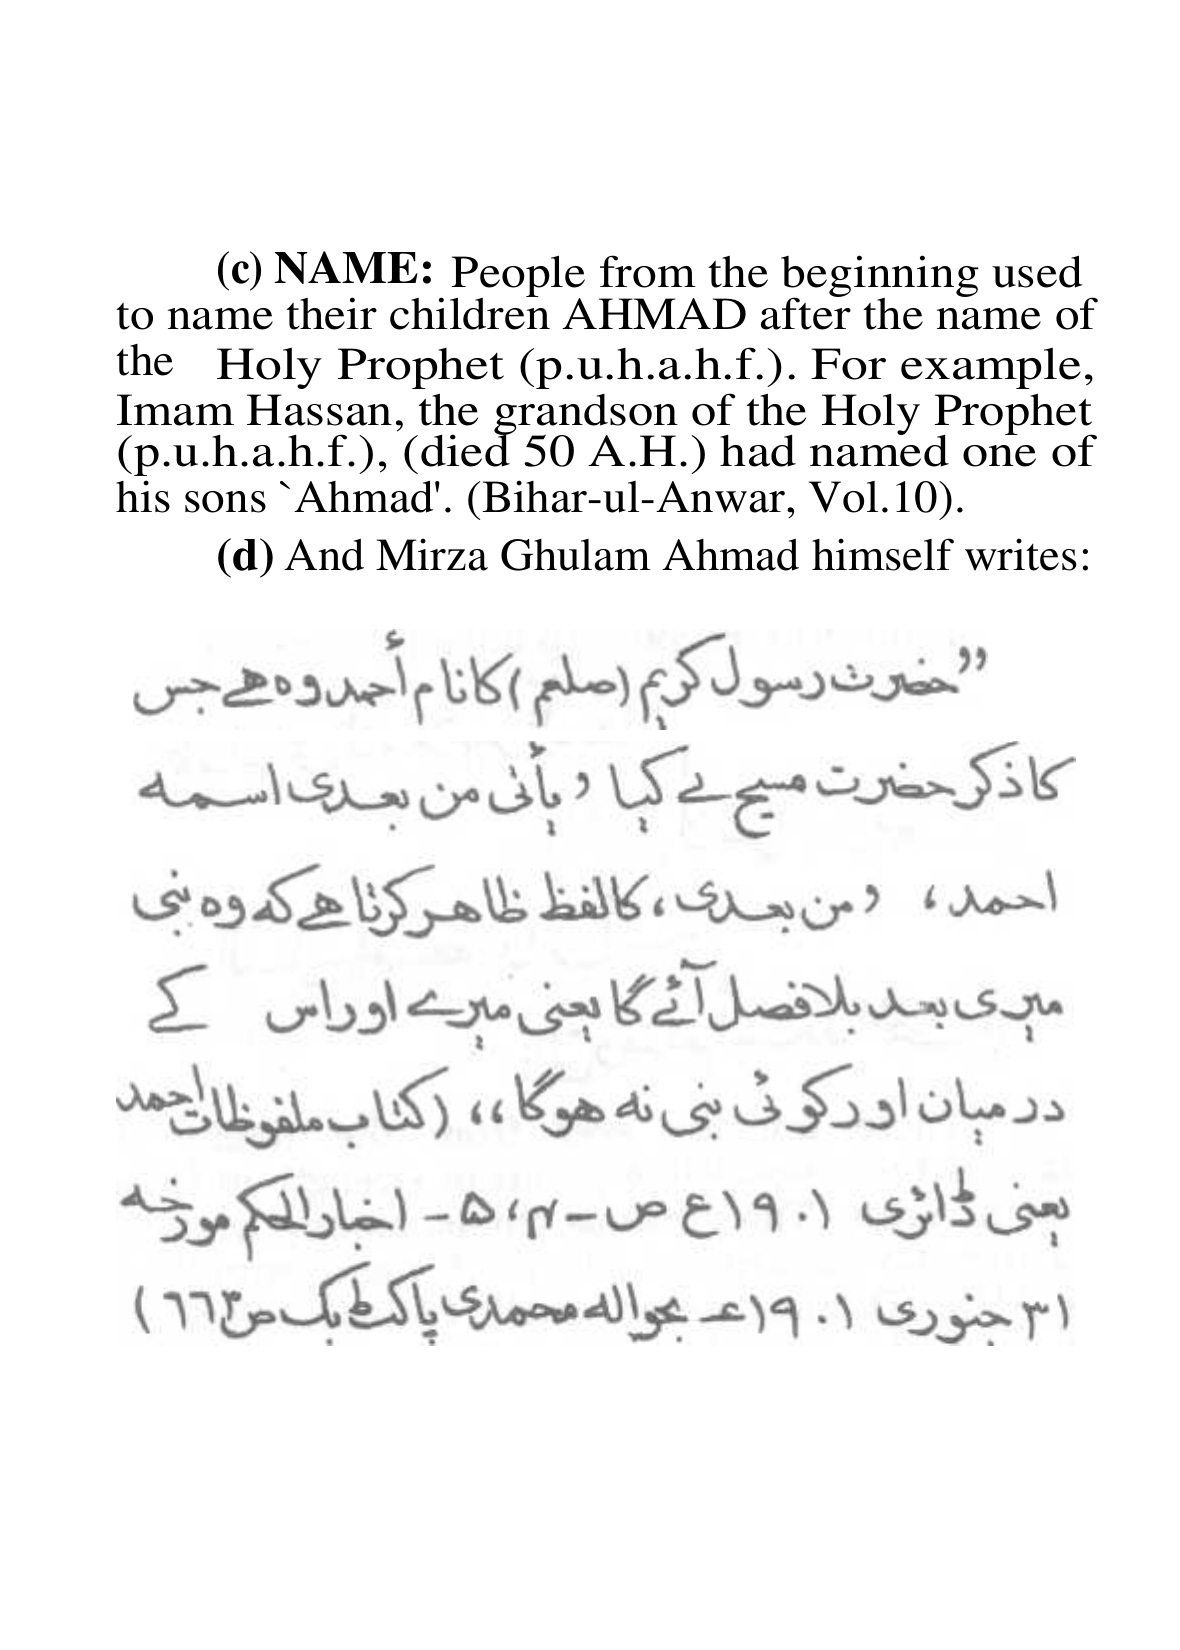 (c) NAME: People from the beginning used
to name their children AHMAD after the name of
the Holy Prophet (p.u.h.a.h.f.). For example,
Imam Hassan, the grandson of the Holy Prophet
(p.u.h.a.h.f.), (died 50 A.H.) had named one of
his sons `Ahmad'. (Bihar-ul-Anwar, Vol.10).
(d) And Mirza Ghulam Ahmad himself writes:
”حضرت رسول کریم (صلعم) کا نام أحمد وہ ہے جس
کا ذکر حضرت مسیح نے کیا ’ یأتی من بعدی اسمہ
احمد، ’ من بعدی، کا لفظ ظاہر کرتا ہے کہ وہ نبی
میری بعد بلا فصل آئے گا یعنی میرے اور اس کے
درمیان اور کوئی نبی نہ ہوگا،، (کتاب ملفوظات احمد
یعنی ڈائری ۱۹۰۱ع ص-۴،۵- اخبار الحکم مورخہ
۳۱ جنوری ۱۹۰۱ء بحوالہ محمدی پاکٹ بک ص٦٦٣)